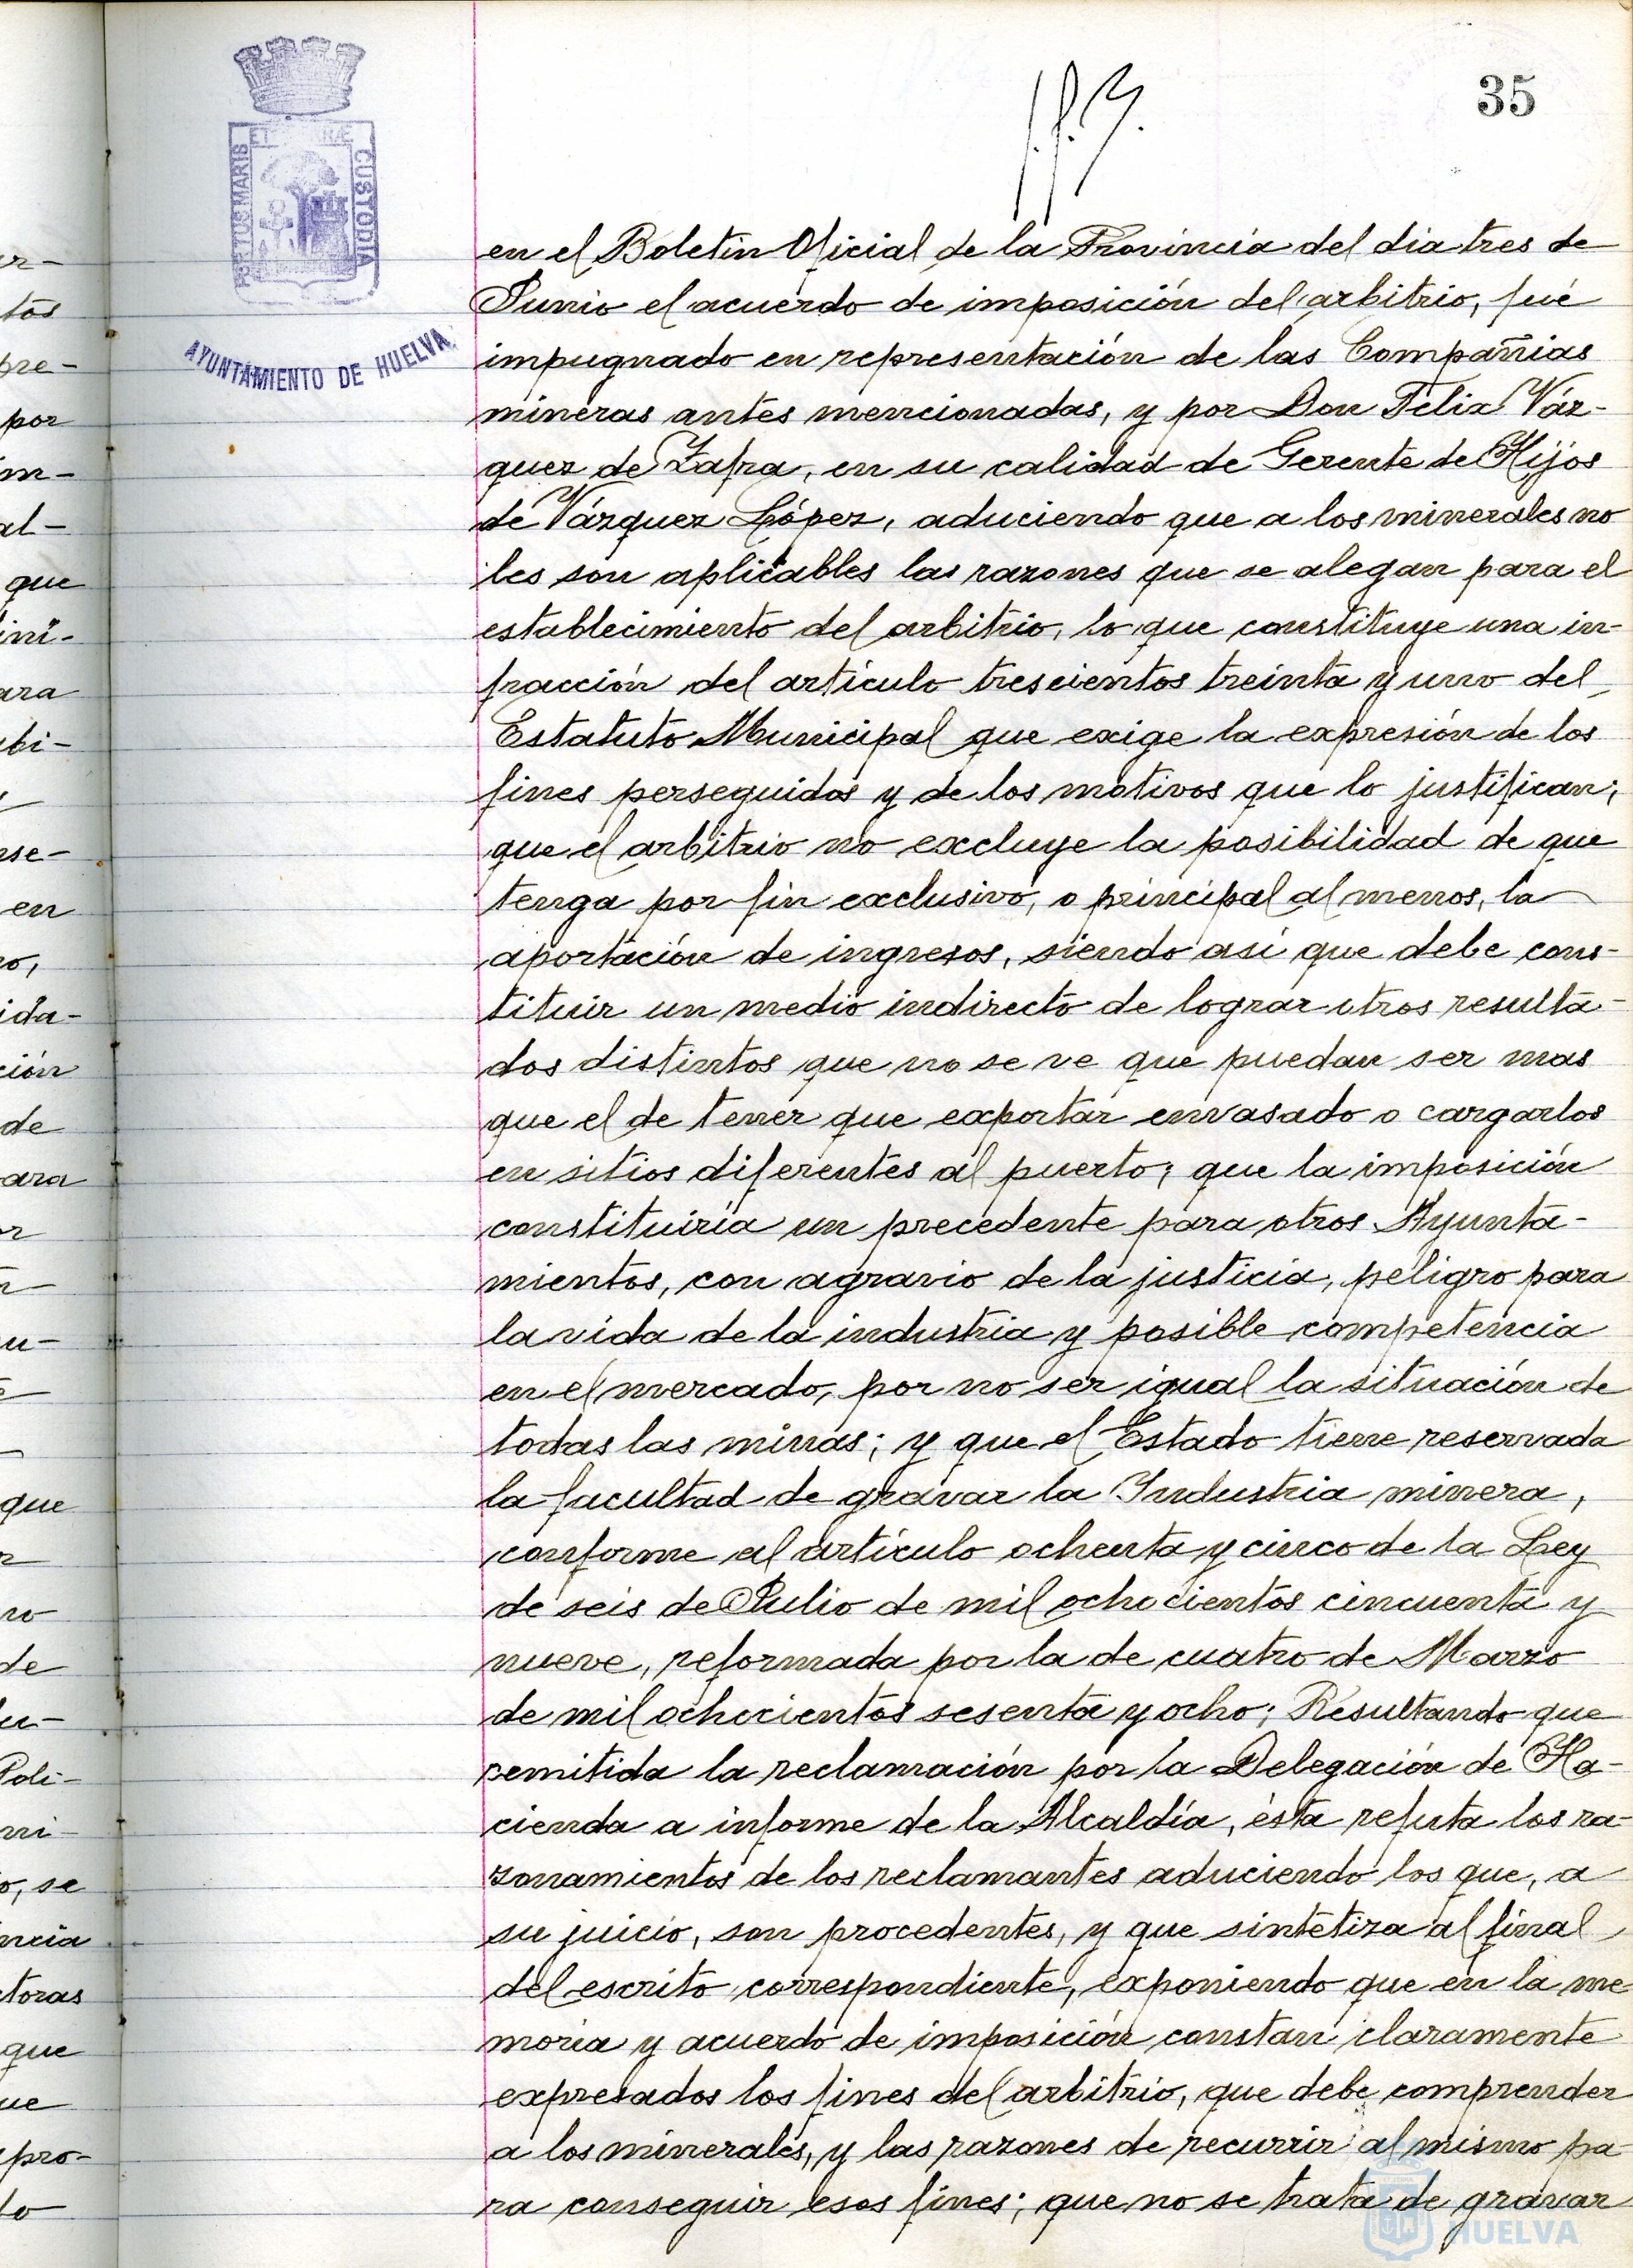 35
PORTUS MARIS ET TERRÆ CUSTODIA
AYUNTAMIENTO DE HUELVA
en el Boletin Oficial de la Provincia del dia tres de
Junio el acuerdo de imposición del arbitrio, fué
impugnado en representación de las Compañias
mineras antes mencionadas, y por Don Felix Váz-
quez de Zafra, en su calidad de Gerente de Hijos
de Vázquez López, aduciendo que a los minerales no
les son aplicables las razones que se alegan para el
establecimiento del arbitrio, lo que constituye una in-
fracción del artículo trescientos treinta y uno del
Estatuto Municipal que exige la expresión de los
fines perseguidos y de los motivos que lo justifican;
que el arbitrio no excluye la posibilidad de que
tenga por fin exclusivo, o principal al menos, la
aportación de ingresos, siendo así que debe cons-
tituir un medio indirecto de lograr otros resulta-
dos distintos que no se ve que puedan ser mas
que el de tener que exportar envasado o cargarlos
en sitios diferentes al puerto; que la imposición
constituiría un precedente para otros Ayunta-
mientos, con agravio de la justicia, peligro para
la vida de la industria y posible competencia
en el mercado, por no ser igual la situación de
todas las minas; y que el Estado tiene reservada
la facultad de gravar la Industria minera,
conforme al artículo ochenta y cinco de la Ley
de seis de Julio de mil ochocientos cincuenta y
nueve, reformada por la de cuatro de Marzo
de mil ochocientos sesenta y ocho; Resultando que
remitida la reclamación por la Delegación de Ha-
cienda a informe de la Alcaldía, ésta refuta los ra-
zonamientos de los reclamantes aduciendo los que, a
su juicio, son procedentes, y que sintetiza al final
del escrito correspondiente, exponiendo que en la me
moria y acuerdo de imposición constan claramente
expresados los fines del arbitrio, que debe comprender
a los minerales, y las razones de recurrir al mismo pa-
ra conseguir esos fines; que no se trata de gravar
HUELVA